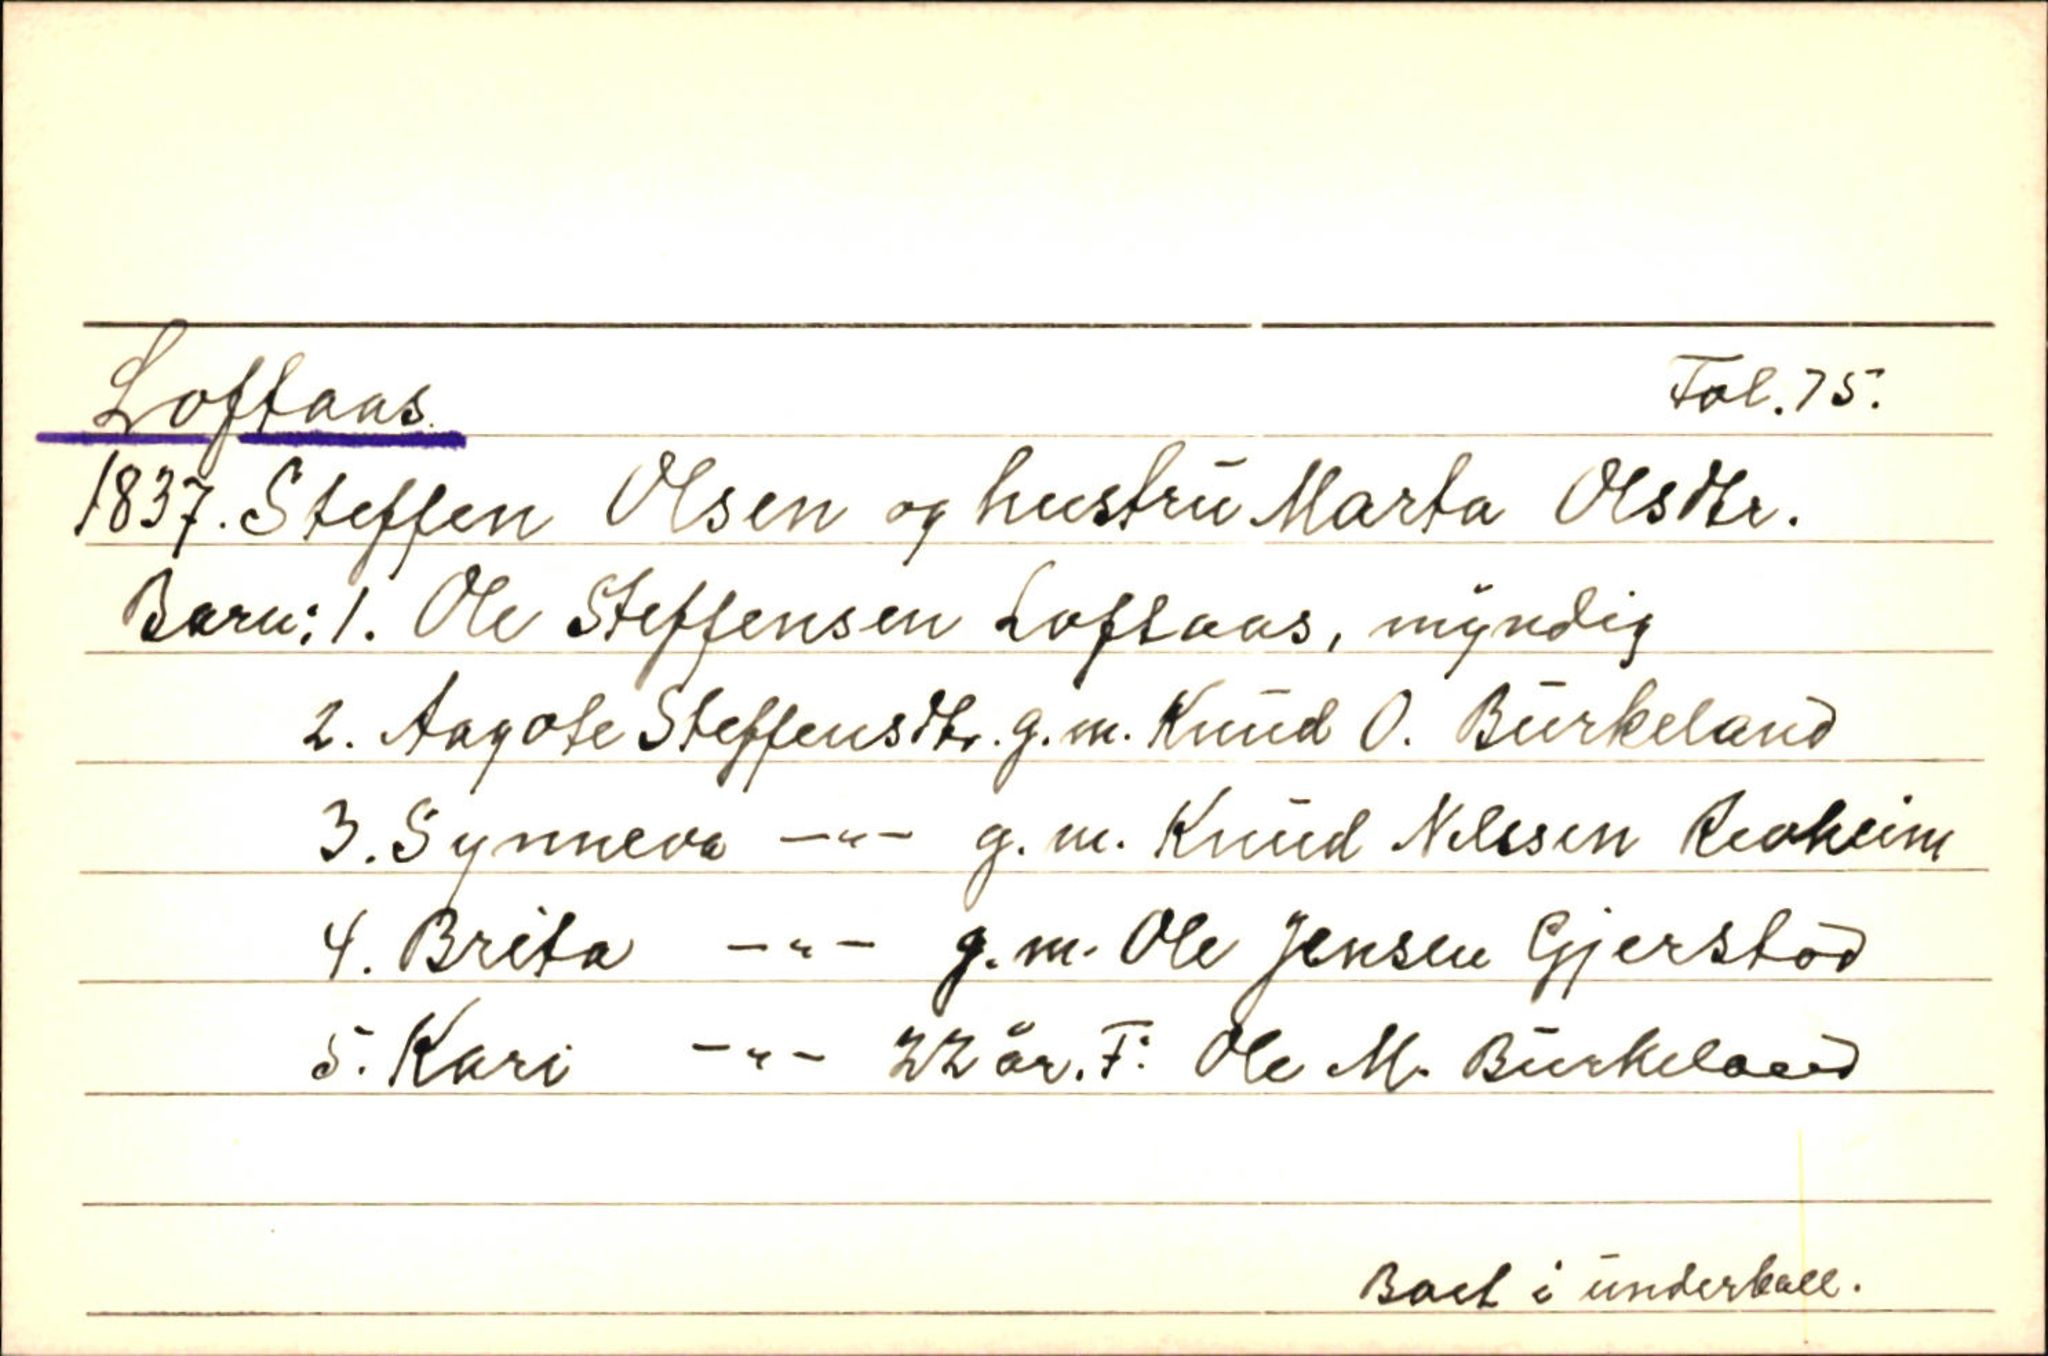 Loftaas. Fol. 75.
1837. Steffen Olsen og hustru Marta Olsdtr.
Barn: 1. Ole Steffensen Loftaas, myndig
2. Aagote Steffensdtr. g.m. Knud O. Burkeland
3. Synneva -"- g.m. Knud Nilssen Reoheim
4. Brita -"- g.m. Ole Jensen Gjerstod
5. Kari -"- 22 år. F: Ole M. Burkeland
Boet i underball.